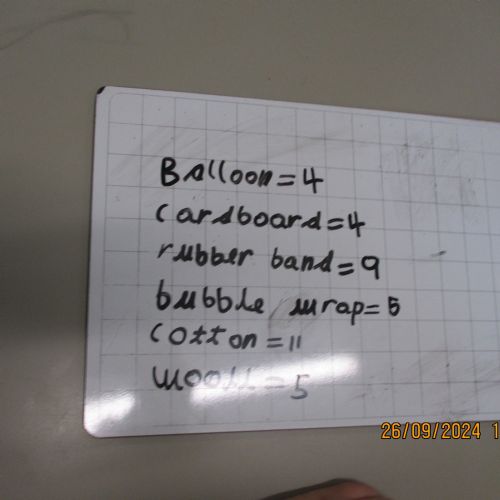 Balloon = 4
cardboard = 4
rubber band = 9
bubble wrap = 5
cotton = 11
wooll = 5
26/09/2024 1